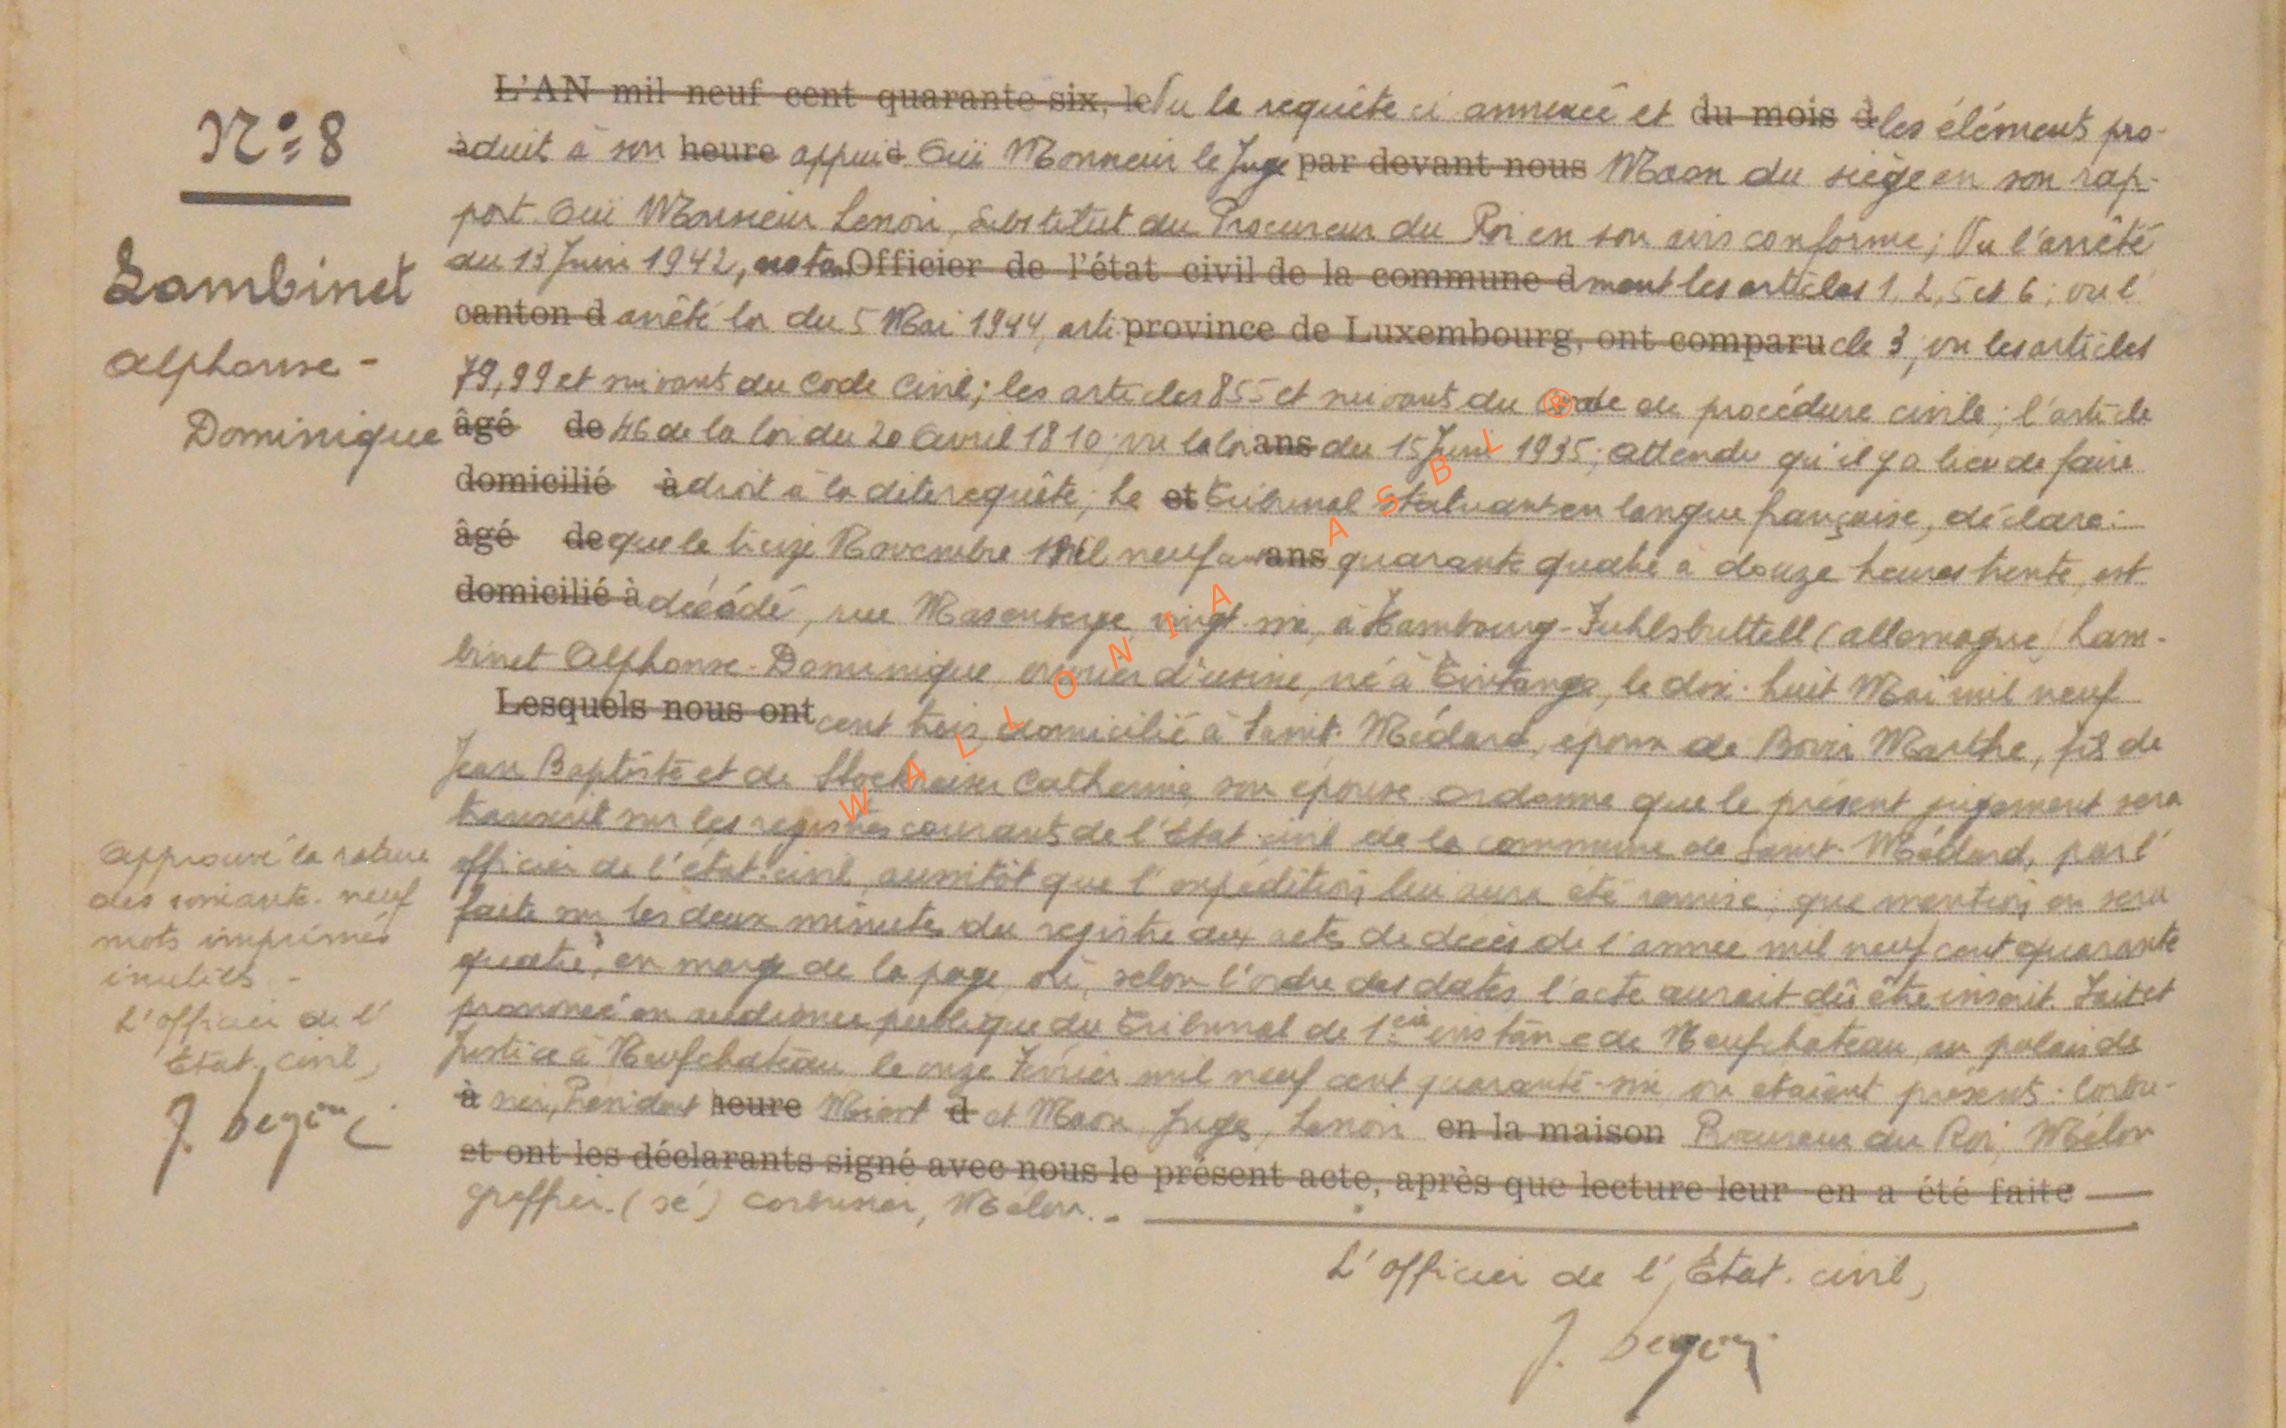 N° 8
Lambinet
Alphonse -
Dominique
L'AN mil neuf cent quarante-six, le Vu la requête ci annexée et du mois d les éléments pro-
à duit à son heure appui d. Ouï Monsieur le Juge par devant nous Maon du siège en son rap-
port. Ouï Monsieur Lenoir, Substitut du Procureur du Roi en son avis conforme; Vu l'arrêté
du 13 Juin 1942, notam Officier de l'état civil de la commune d ment les articles 1, 2, 5 et 6; vu l'
canton d arrêté loi du 5 Mai 1944, arti province de Luxembourg, ont comparu cle 3, vu les articles
79, 99 et suivants du Code Civil; les articles 855 et suivants du Code de procédure civile; l'article
âgé de 46 de la loi du 20 Avril 1810; vu la loi ans du 15 Juin 1935; Attendu qu'il y a lieu de faire
domicilié à droit à la dite requête; Le et Tribunal statuant en langue française, déclare:
âgé de que le treize Novembre Mil neuf cent ans quarante quatre à douze heures trente, est
domicilié à décédé, rue Masenberge vingt-six, à Hambourg-Fuhlsbuttell (allemagne) Lam-
binet Alphonse-Dominique, ouvrier d'usine, né à Tintange, le dix-huit Mai mil neuf
Lesquels nous ont cent trois, domicilié à Saint-Médard, époux de Marthe, fils de
Jean Baptiste et de Catherine, son épouse ordonne que le présent jugement sera
transcrit sur les registres courants de l'Etat-civil de la commune de Saint-Médard, par l'
officier de l'état-civil, aussitôt que l'expédition lui aura été remise; que mention en sera
faite sur les deux minutes du registre aux actes de décès de l'année mil neuf cent quarante
quatre, en marge de la page, où, selon l'ordre des dates, l'acte aurait dû être inscrit. Fait et
prononcé en audience publique du Tribunal de 1ère instance de Neufchateau, au palais de
Justice à Neufchateau le onze Février mil neuf cent quarante-six où etaient présents: Corbu-
à sier, Président heure d et Maon Juges, Lenoir en la maison Procureur du Roi, Mélon
et ont les déclarants signé avec nous le présent acte, après que lecture leur en a été faite
greffier. (sé) Corbusier, Mélon. -
Approuvé la rature
des soixante-neuf
mots imprimés
inutiles. -
L'officier de l'
Etat-civil,
L'officier de l'Etat-civil,
WALLONIA ASBL ®